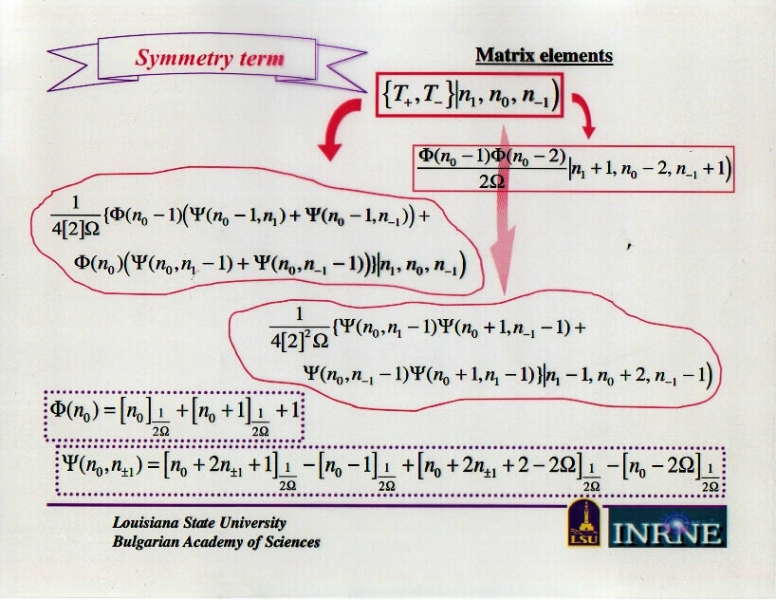 Symmetry term
Matrix elements
{T₊,T₋}|n₁, n₀, n₋₁)
Φ(n₀ − 1)Φ(n₀ − 2)/2Ω |n₁ + 1, n₀ − 2, n₋₁ + 1)
1/4[2]Ω {Φ(n₀ − 1)(Ψ(n₀ − 1,n₁) + Ψ(n₀ − 1,n₋₁)) +
Φ(n₀)(Ψ(n₀,n₁ − 1) + Ψ(n₀,n₋₁ − 1))}|n₁, n₀, n₋₁)
1/4[2]²Ω {Ψ(n₀,n₁ − 1)Ψ(n₀ + 1,n₋₁ − 1) +
Ψ(n₀,n₋₁ − 1)Ψ(n₀ + 1,n₁ − 1)}|n₁ − 1, n₀ + 2, n₋₁ − 1)
Φ(n₀) = [n₀]_{1/2Ω} + [n₀ + 1]_{1/2Ω} + 1
Ψ(n₀,n_{±1}) = [n₀ + 2n_{±1} + 1]_{1/2Ω} − [n₀ − 1]_{1/2Ω} + [n₀ + 2n_{±1} + 2 − 2Ω]_{1/2Ω} − [n₀ − 2Ω]_{1/2Ω}
Louisiana State University
Bulgarian Academy of Sciences
LSU
INRNE